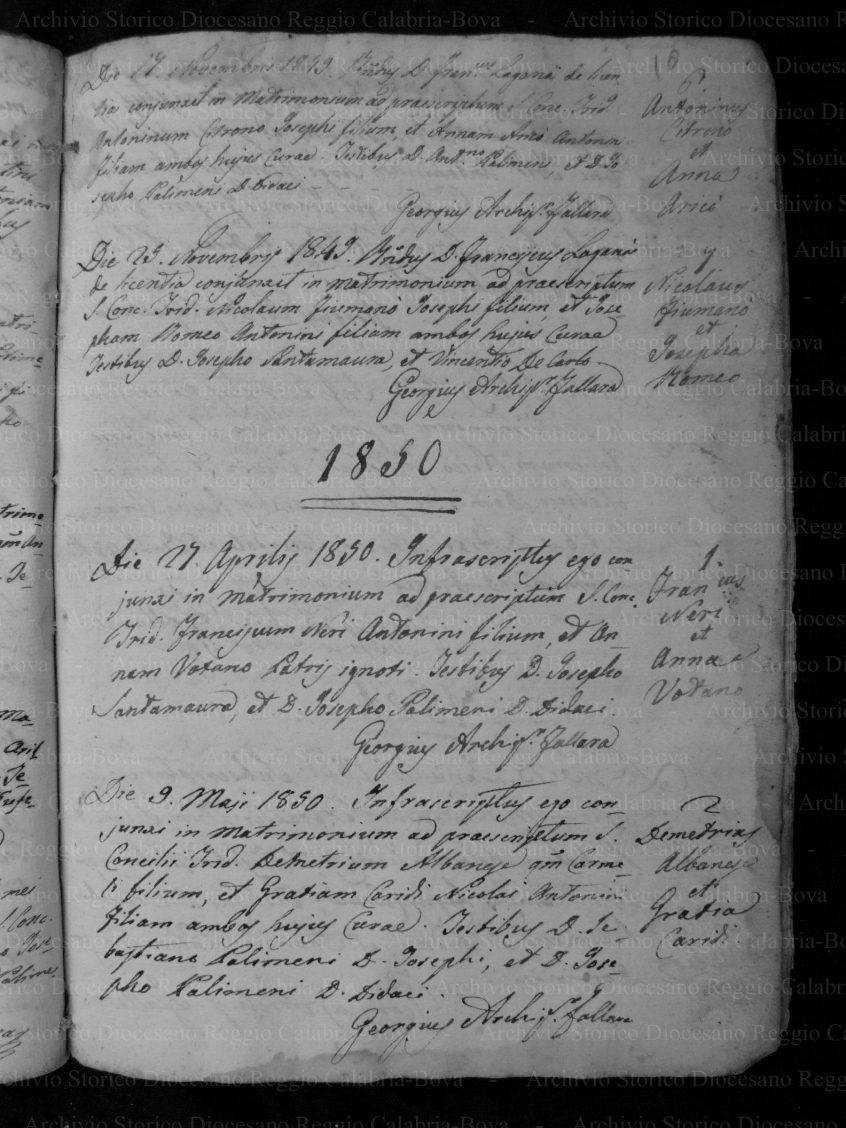 Die 17. Novembris 1849. D. Laganà de licen
tia conjunxit in Matrimonium ad praescriptum S. Conc. Trid.
Antoninum Citrono Josephi filium, et Annam Aricò Antonini
filiam ambos hujus Curae. Testibus D. Ant.no Palimeni, et D. Jo
sepho Palimeni D. Didaci
Georgius Archip.r Fallara
Antoninus
Citrono
et
Anna
Aricò
Die 25. Novembris 1849. D. Franciscus Laganà
de licentia conjunxit in matrimonium ad praescriptum
S. Conc. Trid. Nicolaum Fiumanò Josephi filium et Jose
pham Romeo Antonini filiam ambos hujus Curae
Testibus D. Josepho Santamaura, et Vincentio De Carlo
Georgius Archip.r Fallara
7
Nicolaus
Fiumano
et
Josepha
Romeo
1850
Die 27. Aprilis 1850. Infrascriptus ego con
junxi in matrimonium ad praescriptum S. Conc.
Trid. Franciscum Neri Antonini filium, et An
nam Votano Patris ignoti. Testibus D. Josepho
Santamaura, et D. Josepho Palimeni D. Didaci.
Georgius Archip.r Fallara
1.
Fran.cus
Neri
et
Anna
Votano
Die 9. Maji 1850. Infrascriptus ego con=
junxi in matrimonium ad praescriptum S.
Concilii Trid. Demetrium Albanese qm̃ Carme=
li filium, et Gratiam Caridi Nicolai Antonini
filiam ambos hujus Curae. Testibus D. Se
bastiano Palimeni D. Josephi, et D. Jose=
pho Palimeni D. Didaci.
Georgius Archip.r Fallara
2
Demetrius
Albanese
et
Gratia
Caridi
Archivio Storico Diocesano Reggio Calabria-Bova